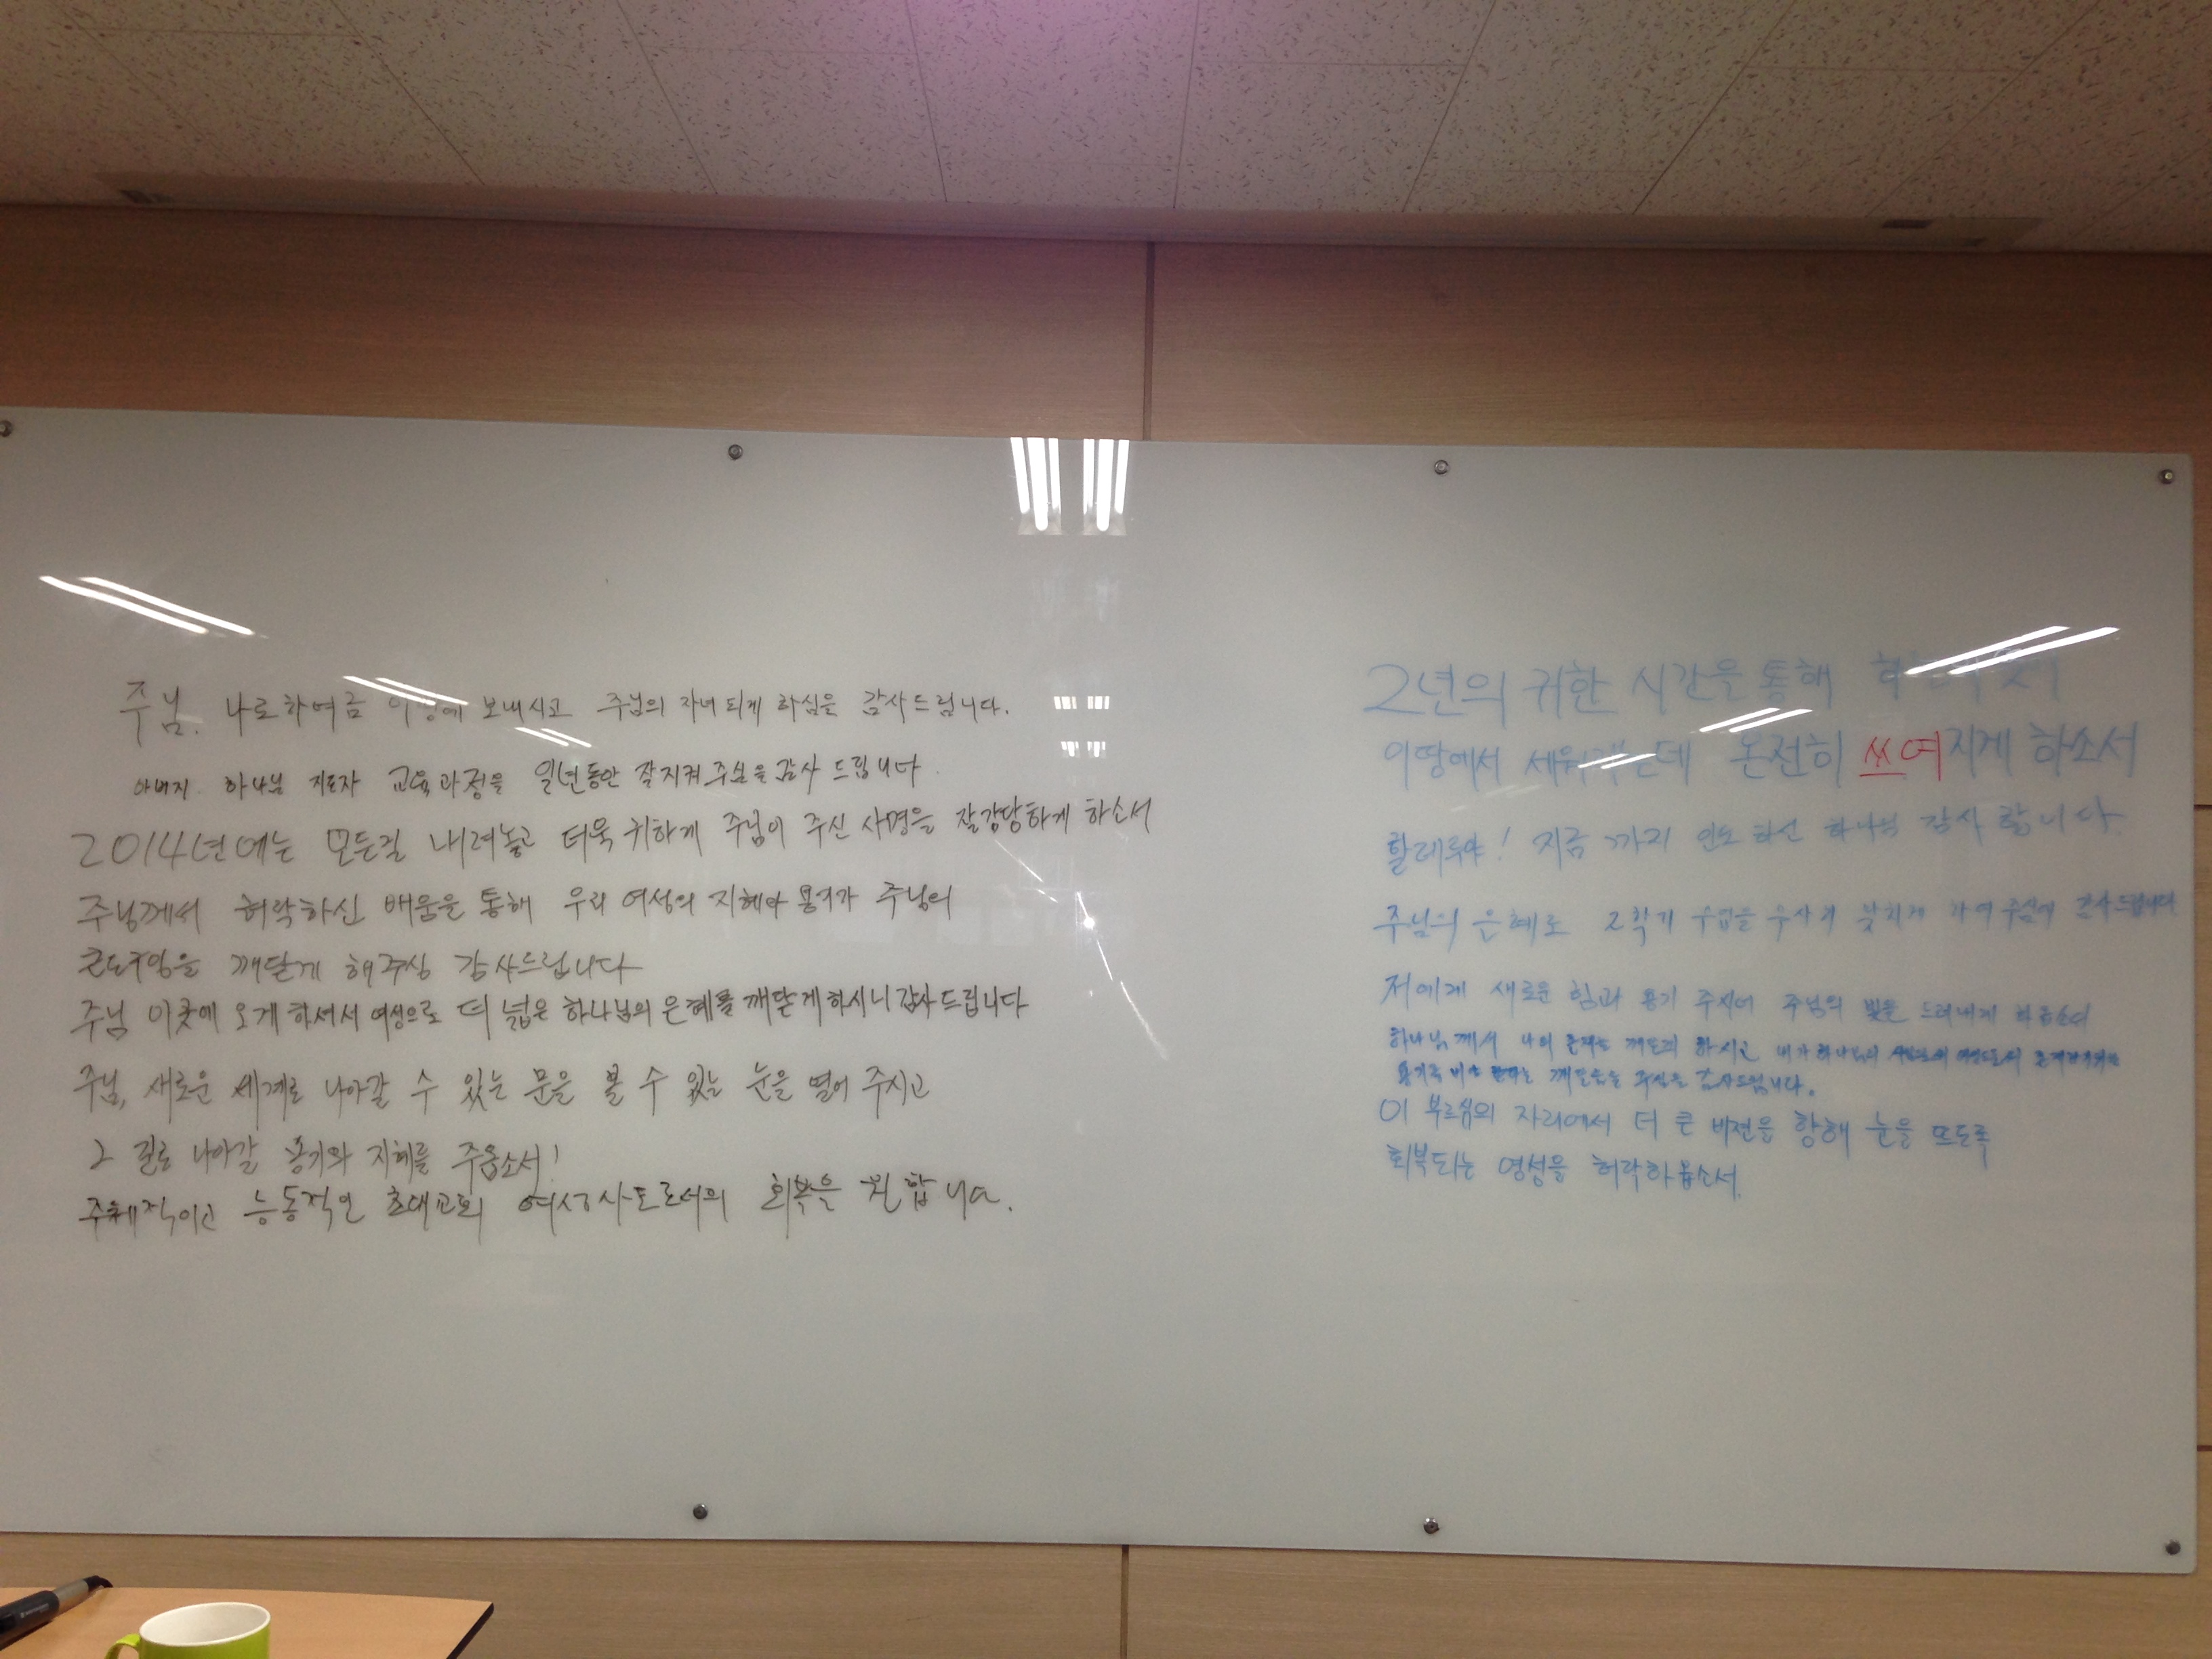 주님. 나로하여금 이땅에 보내시고 주님의 자녀 되게 하심을 감사드립니다.
아버지 하나님 지도자 교육과정을 일년동안 잘지켜주심을 감사 드립니다.
2014년에는 모든걸 내려놓고 더욱 귀하게 주님이 주신 사명을 잘감당하게 하소서
주님께서 허락하신 배움을 통해 우리 여성의 지혜와 용기가 주님의
깨닫게 해주심 감사드립니다
주님 이곳에 오게하셔서 여성으로 더 넓은 하나님의 은혜를 깨닫게하시니감사드립니다
주님, 새로운 세계로 나아갈 수 있는 문을 볼 수 있는 눈을 열어 주시고
그 길로 나아갈 용기와 지혜를 주옵소서!
주체적이고 능동적인 초대교회 여성사도로서의 회복을 원합니다.
2년의 귀한 시간을 통해
이땅에서 온전히 쓰여지게 하소서
할레루야! 지금 까지 인도 하신 하나님 감사 합니다
주님의 은혜로 2학기 수업을 무사히 맞치게 하여 주심에 감사드립니다
저에게 새로운 힘과 용기 주시어 주님의 빛을 드러내게 하옵소서
하나님께서 나의 깨닫게 하시고 내가
깨달음을 주심을 감사드립니다.
이 부르심의 자리에서 더 큰 비전을 향해 눈을 뜨도록
회복되는 영성을 허락하옵소서.